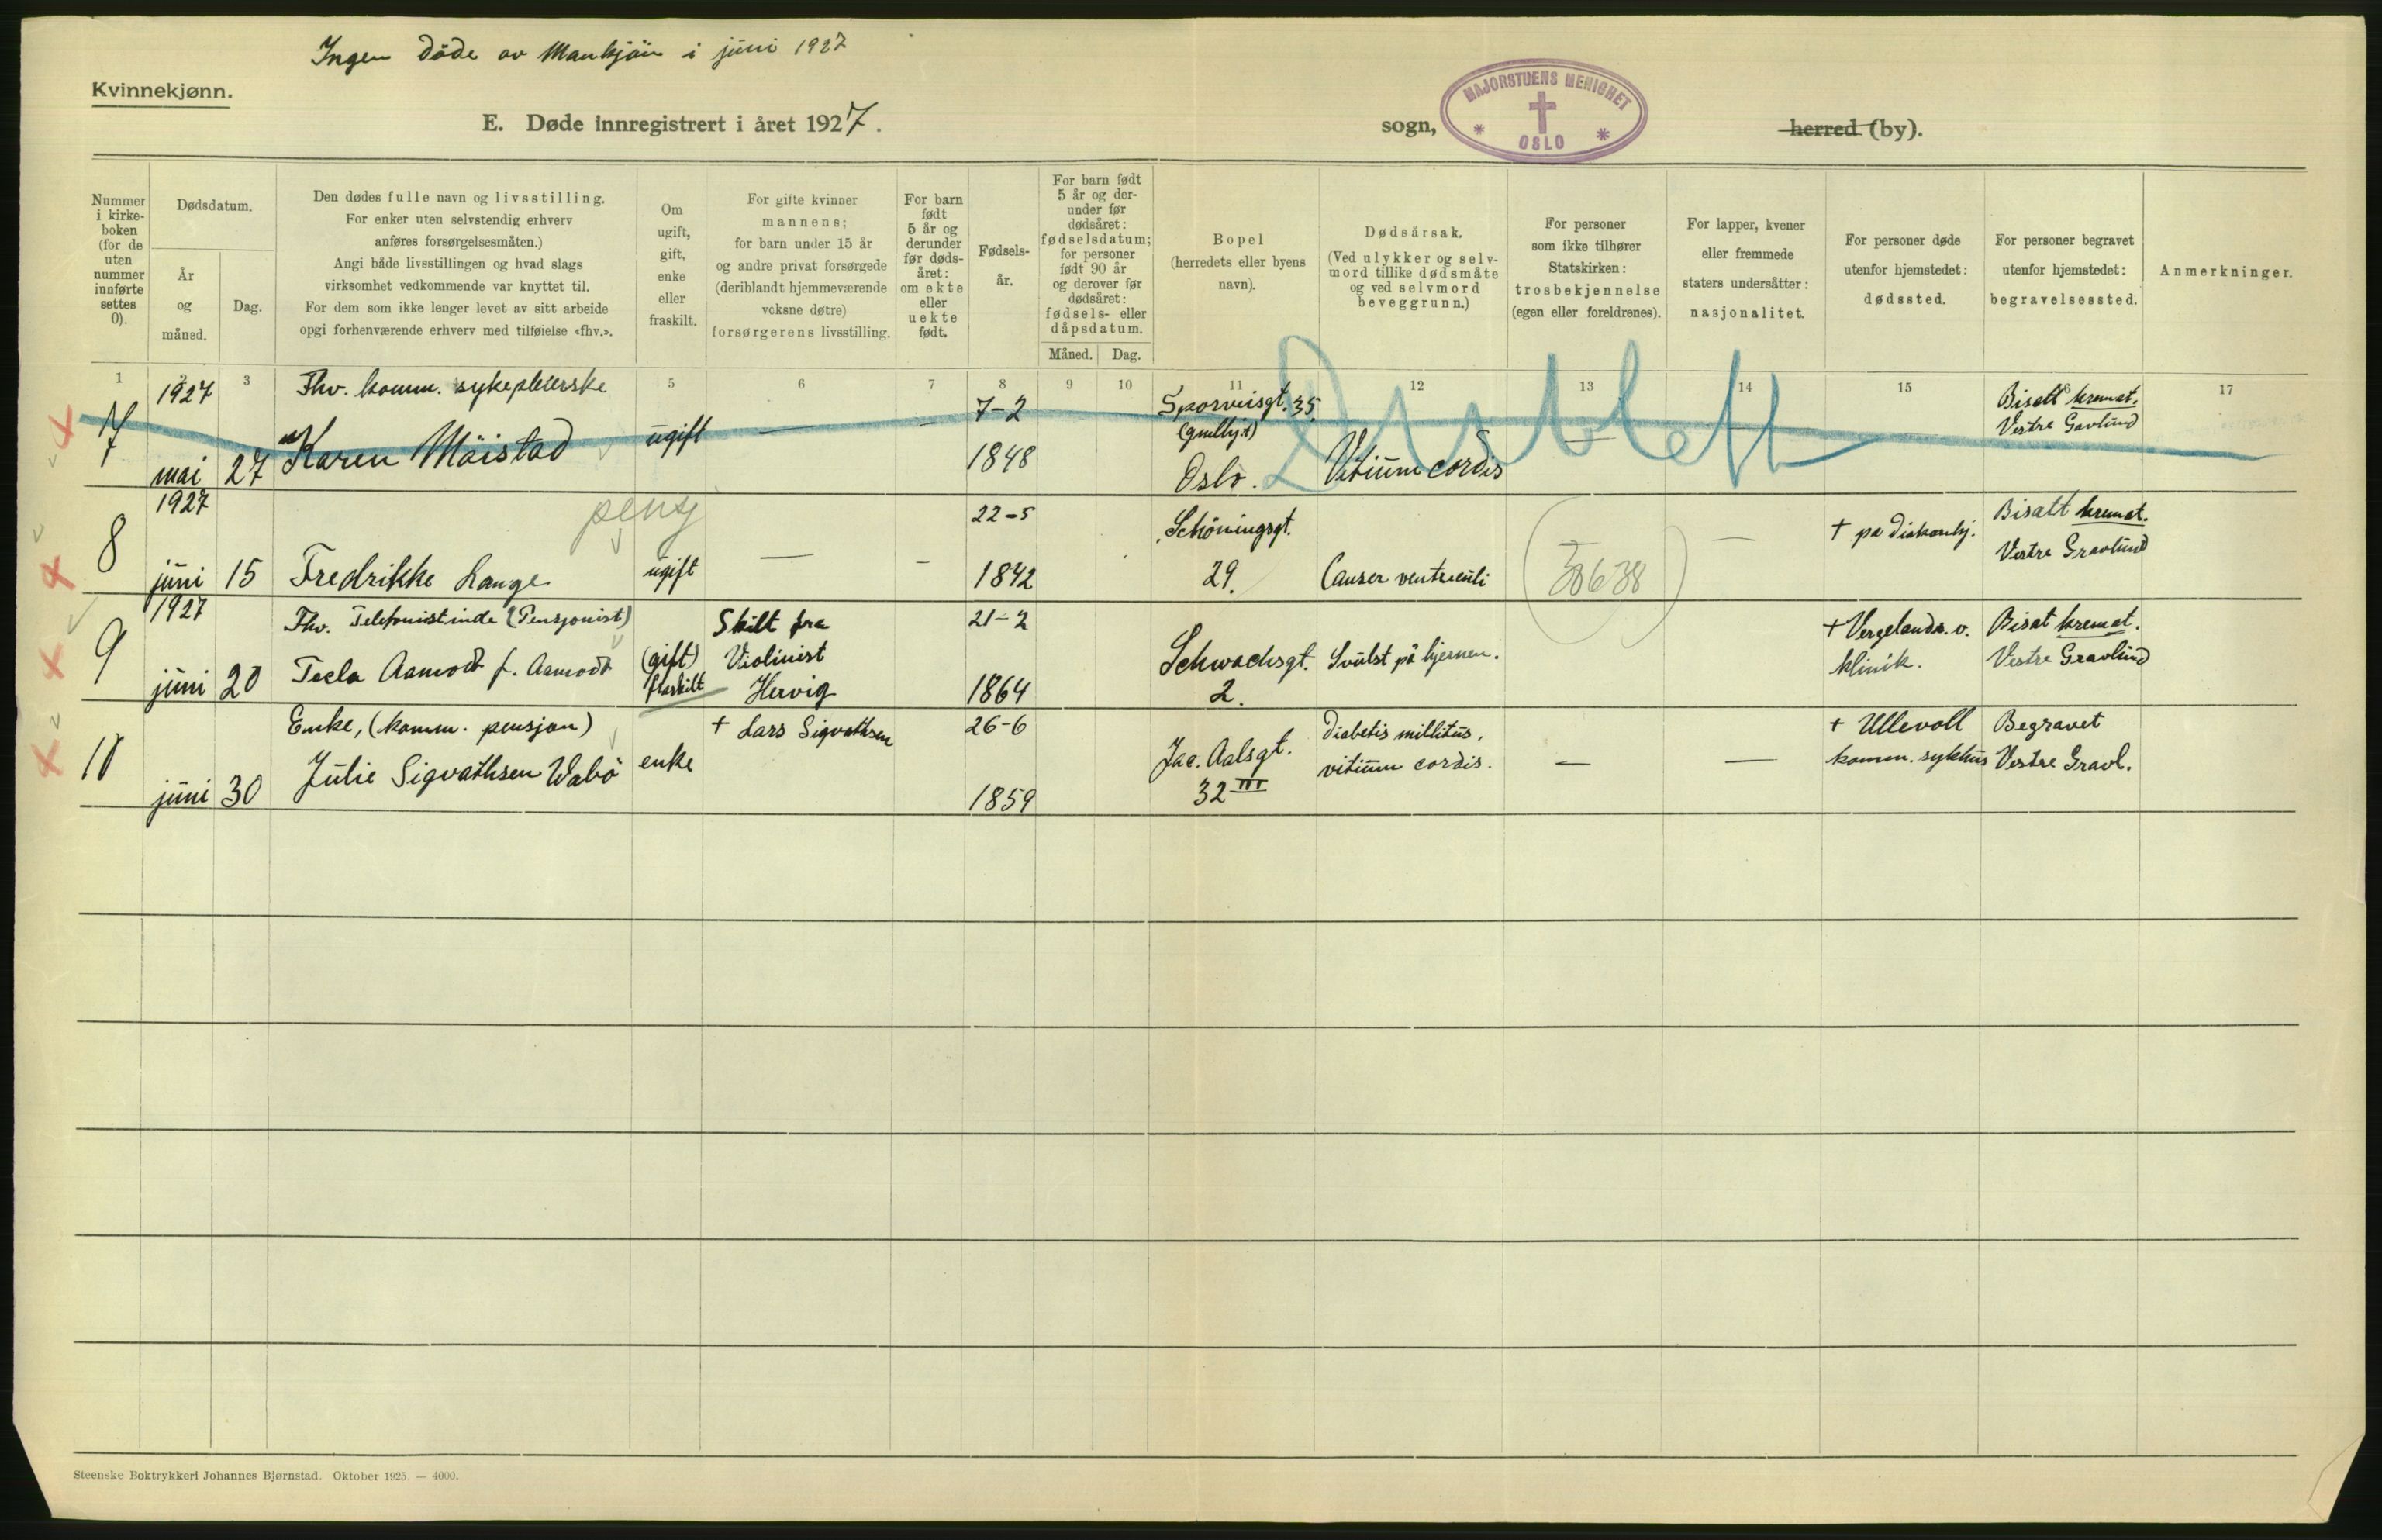 Ingen døde av Mankjøn i juni 1927
Kvinnekjønn.
E. Døde innregistrert i året 1927.
sogn,
MAJORSTUENS MENIGHET
OSLO
herred (by).
Nummer
i kirke-
boken
(for de
uten
nummer
innførte
settes
0).
Dødsdatum.
År
og
måned.
Dag.
Den dødes fulle navn og livsstilling.
For enker uten selvstendig erhverv
anføres forsørgelsesmåten.)
Angi både livsstillingen og hvad slags
virksomhet vedkommende var knyttet til.
For dem som ikke lenger levet av sitt arbeide
opgi forhenværende erhverv med tilføielse «fhv.».
Om
ugift,
gift,
enke
eller
fraskilt.
For gifte kvinner
mannens;
for barn under 15 år
og andre privat forsørgede
(deriblandt hjemmeværende
voksne døtre)
forsørgerens livsstilling.
For barn
født
5 år og
derunder
før døds-
året:
om ekte
eller
uekte
født.
Fødsels-
år.
For barn født
5 år og der-
under før
dødsåret:
fødselsdatum;
for personer
født 90 år
og derover før
dødsåret:
fødsels- eller
dåpsdatum.
Måned. Dag.
Bopel
(herredets eller byens
navn).
Dødsårsak.
(Ved ulykker og selv-
mord tillike dødsmåte
og ved selvmord
beveggrunn.)
For personer
som ikke tilhører
Statskirken:
trosbekjennelse
(egen eller foreldrenes).
For lapper, kvener
eller fremmede
staters undersåtter:
nasjonalitet.
For personer døde
utenfor hjemstedet:
dødssted.
For personer begravet
utenfor hjemstedet:
begravelsessted.
Anmerkninger.
1 2 3 5 6 7 8 9 10 11 12 13 14 15 17
7
1927
mai 27
Fhv. komm. sykepleierske
Karen Möistad
ugift
—
-
7-2
1848
Sporveisgt. 35
Oslo.
Vitium cordis
—
—
Bisatt kremat.
Vestre Gravlund
Dublett
8
1927
juni 15
pensj
Fredrikke Lange
ugift
—
-
22-5
1842
Schöningsgt.
29.
Canser ventriculi
—
30638
—
+ på Diakonhj.
Bisatt kremat.
Vestre Gravlund
9
1927
juni 20
Fhv. Telefonistinde (Pensjonist)
Tecla Aamodt f. Aamodt
(gift)
fraskilt
Skilt fra
Violinist
Hervig
21-2
1864
Schwachsgt.
2.
Svulst på hjernen.
+ Vergelands v.
klinik.
Bisat kremat.
Vestre Gravlund
10
juni 30
Enke, (komm. pensjon)
Julie Sigvathsen Wabö
enke
+ Lars Sigvathsen
26-6
1859
Jac. Aalsgt.
32 III
Diabetis millitus,
vitium cordis.
—
—
+ Ullevoll
komm. sykhus
Begravet
Vestre Gravl.
Steenske Boktrykkeri Johannes Bjørnstad. Oktober 1925. — 4000.